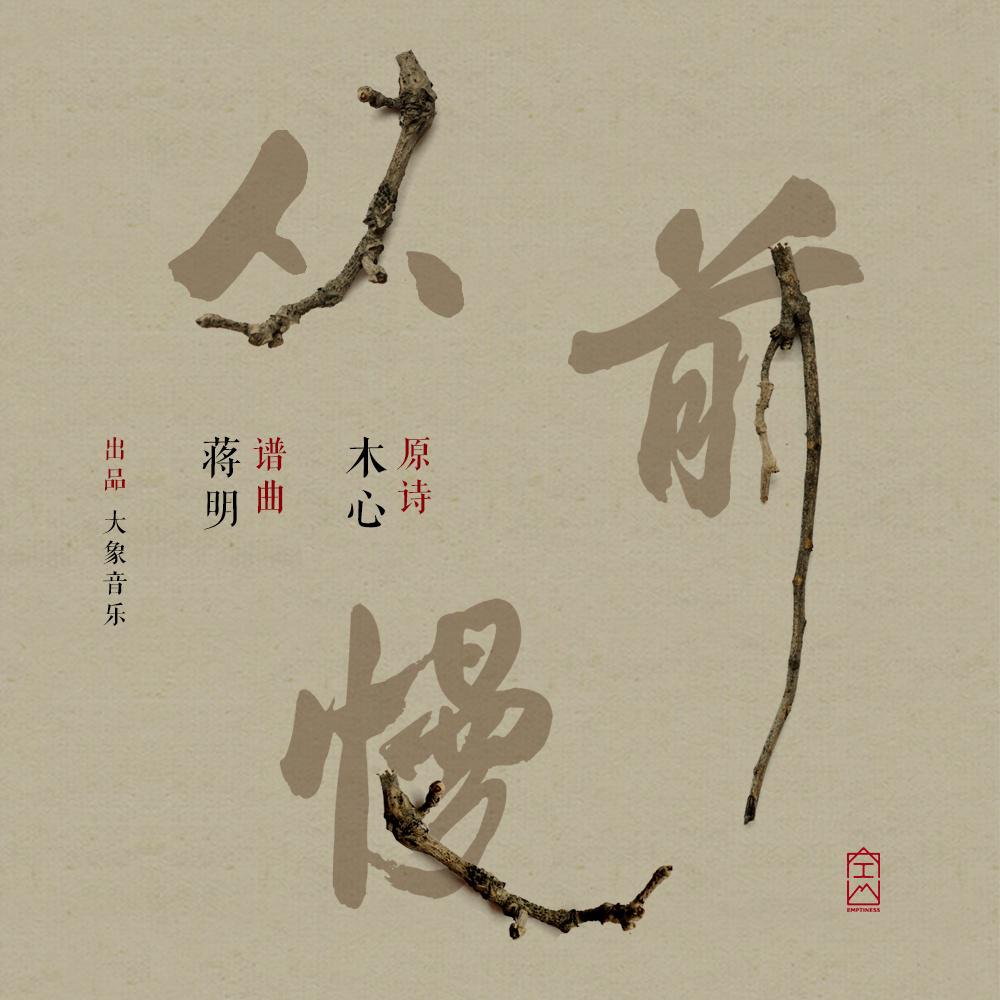 从
前
慢
原诗
木心
谱曲
蒋明
出品 大象音乐
EMPTINESS